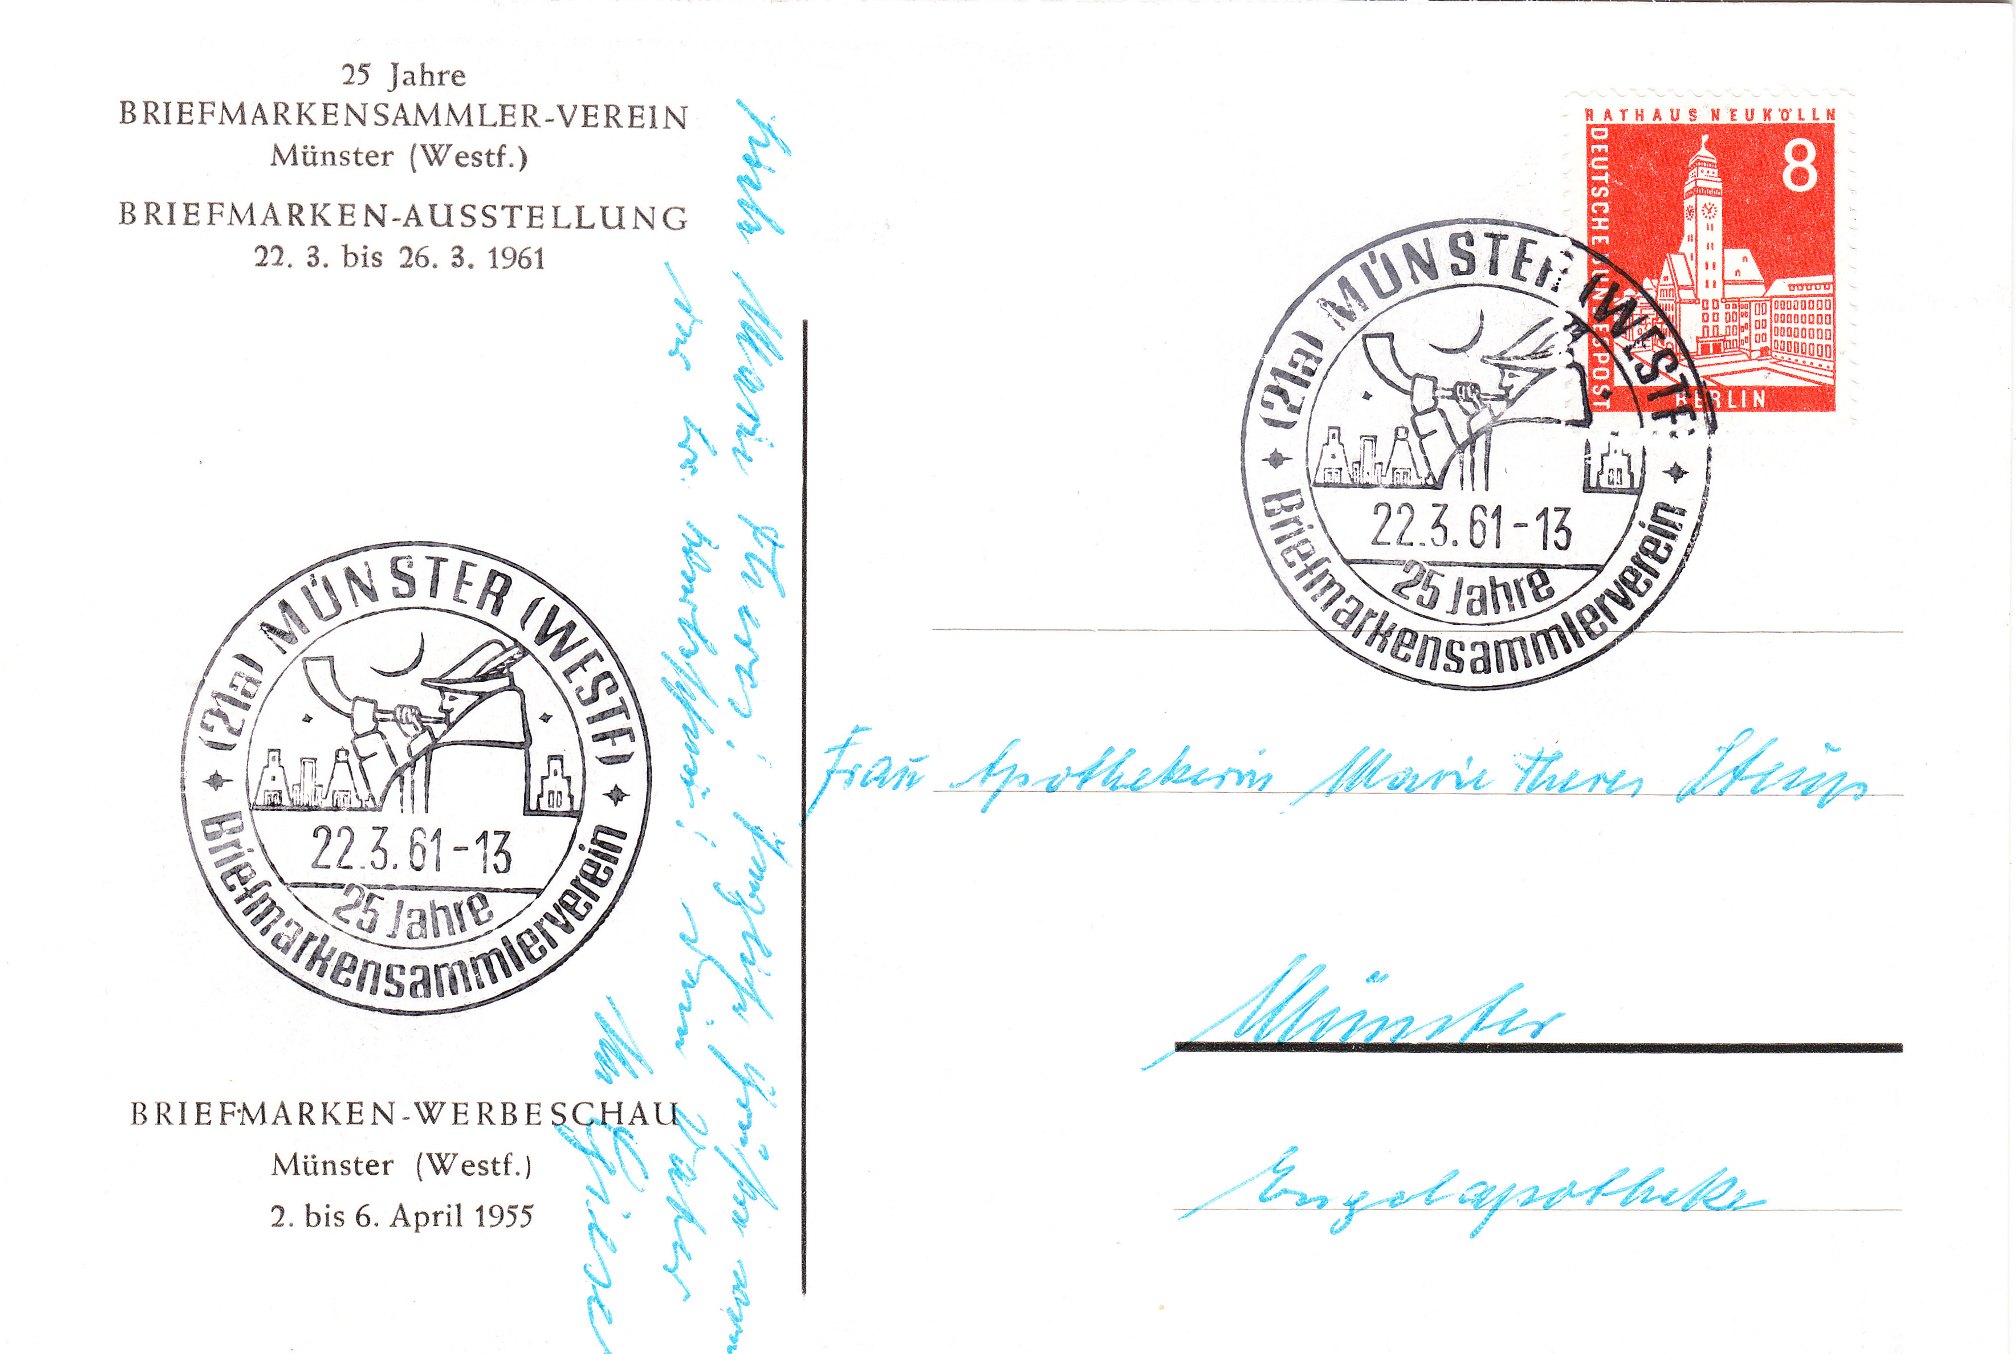 25 Jahre
BRIEFMARKENSAMMLER-VEREIN
Münster (Westf.)
BRIEFMARKEN-AUSSTELLUNG
22. 3. bis 26. 3. 1961
(21a) MÜNSTER (WESTF)
22.3.61-13
25 Jahre
Briefmarkensammlerverein
BRIEFMARKEN-WERBESCHAU
Münster (Westf.)
2. bis 6. April 1955
Marie Theres!
Dein Vater
RATHAUS NEUKÖLLN
DEUTSCHE BUNDESPOST
8
BERLIN
(21a) MÜNSTER (WESTF)
22.3.61-13
25 Jahre
Briefmarkensammlerverein
Frau Apothekerin Marie Theres
Münster
Engelapotheke